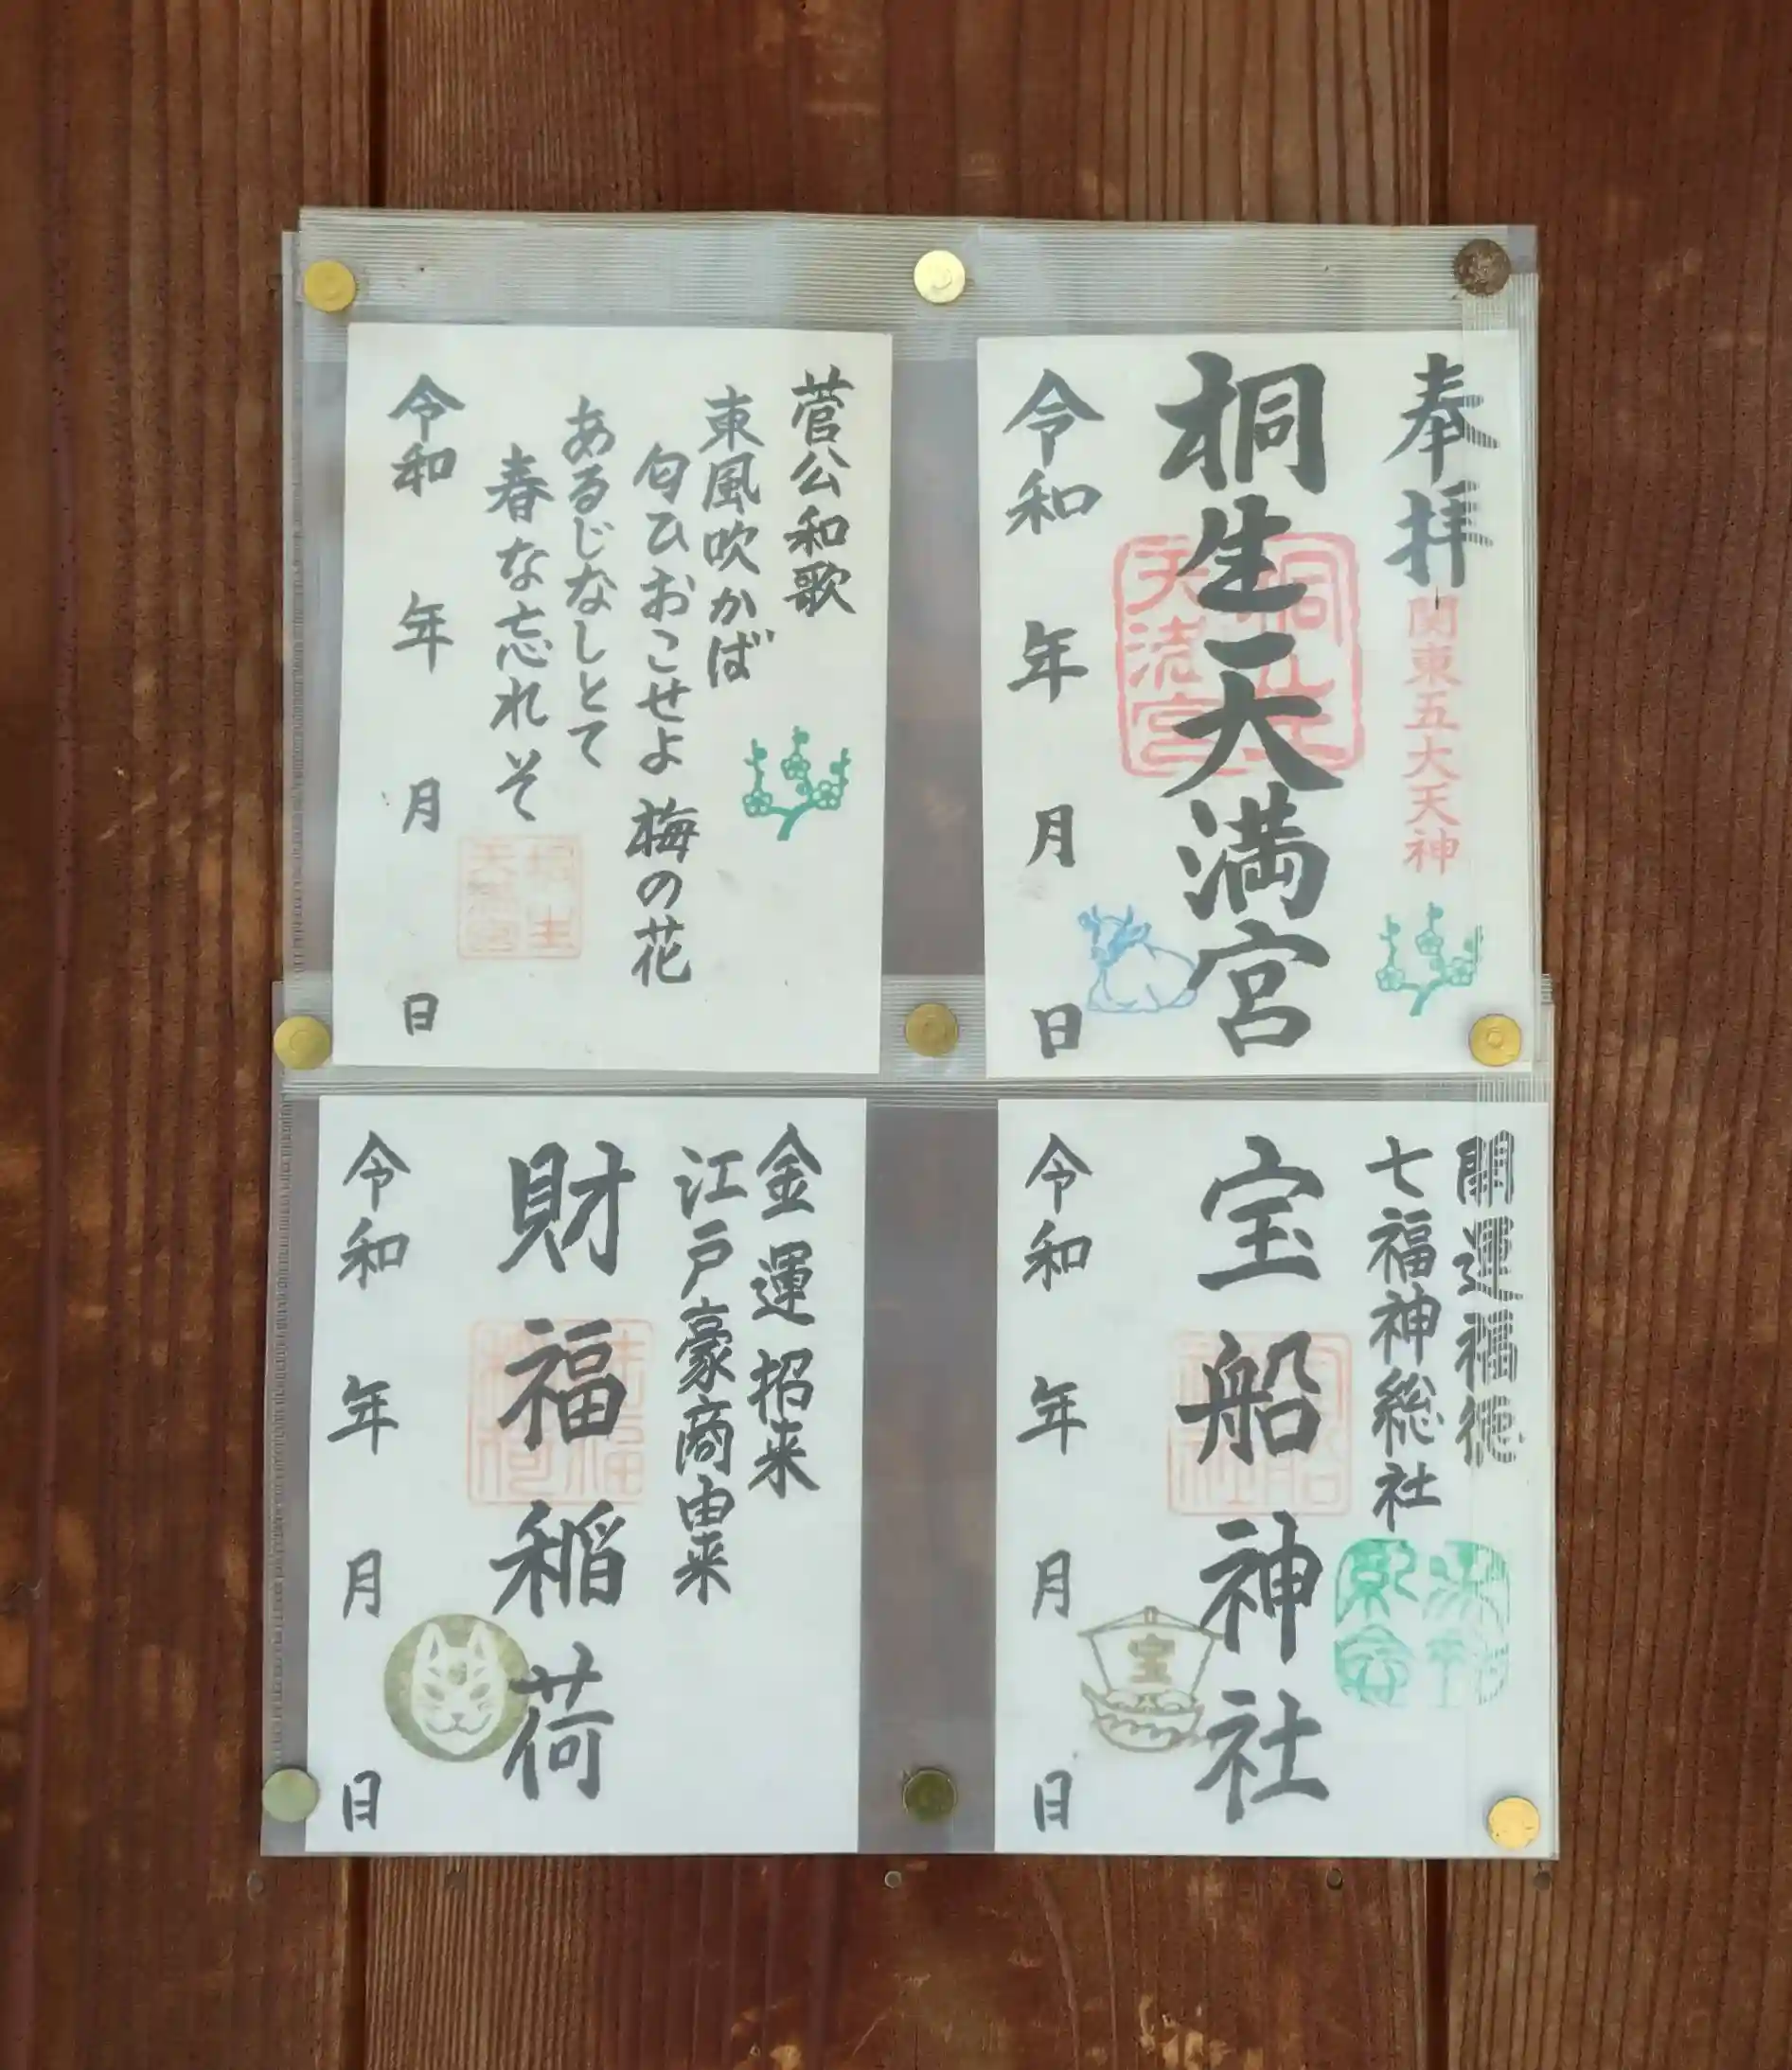 奉拝
関東五大天神
桐生天満宮
桐生
天満宮
令和 年 月 日
菅公和歌
東風吹かば
匂ひおこせよ 梅の花
あるじなしとて
春な忘れそ
桐生
天満宮
令和 年 月 日
開運福徳
七福神総社
宝船神社
宝
令和 年 月 日
金運招来
江戸豪商由来
財福稲荷
令和 年 月 日